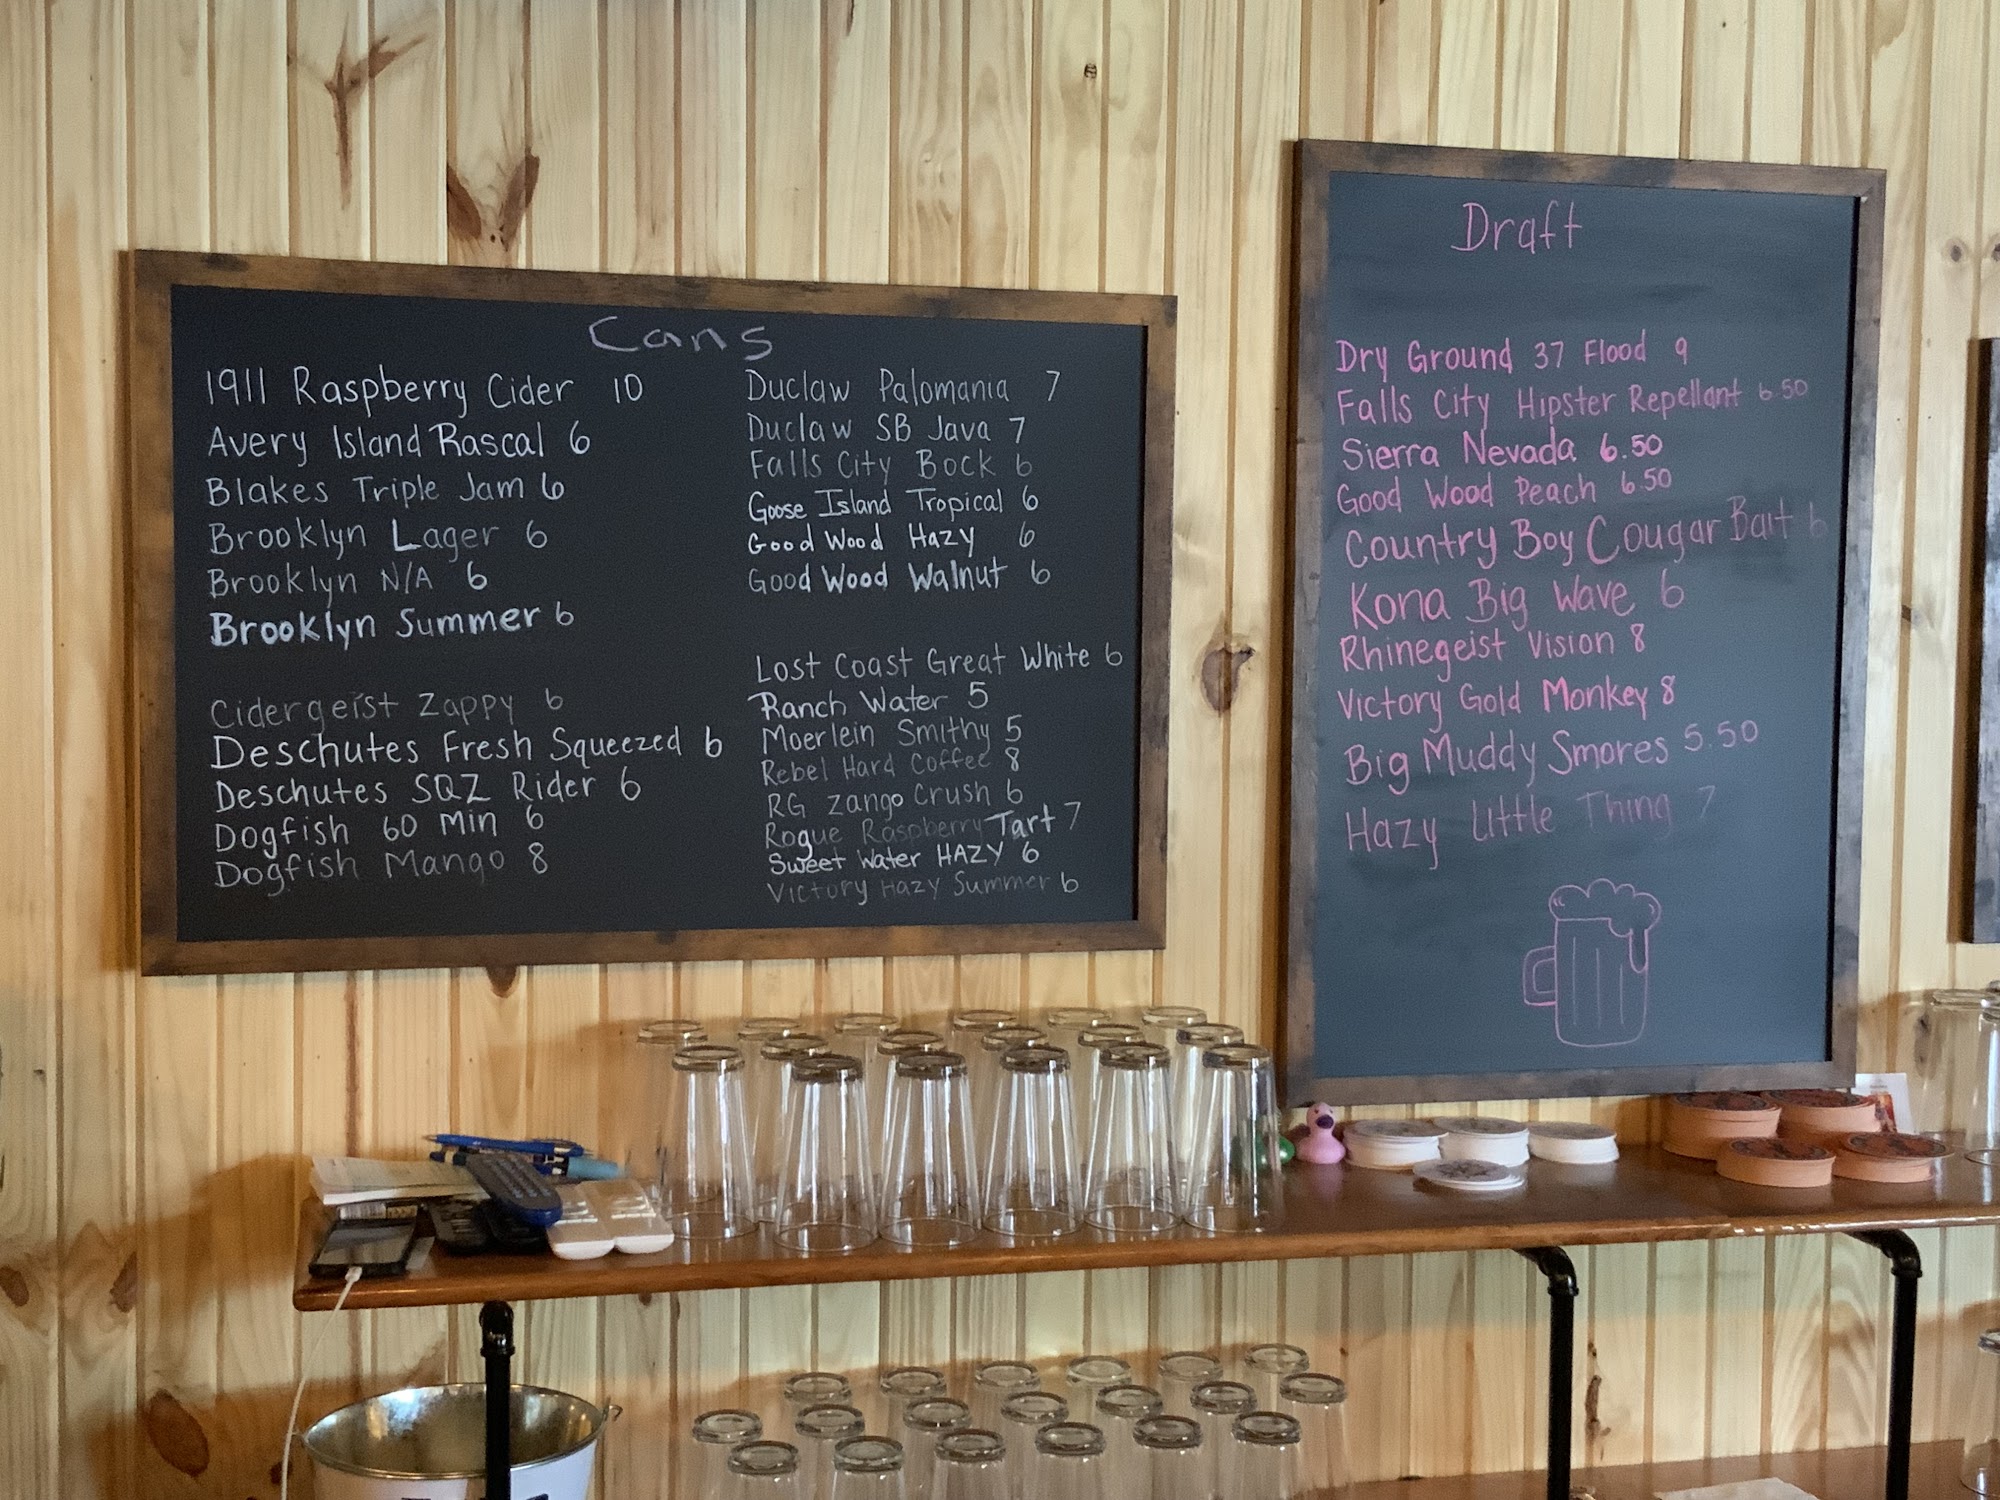 Cans
1911 Raspberry Cider 10
Avery Island Rascal 6
Blakes Triple Jam 6
Brooklyn Lager 6
Brooklyn N/A 6
Brooklyn Summer 6
Cidergeist Zappy 6
Deschutes Fresh Squeezed 6
Deschutes SQZ Rider 6
Dogfish 60 Min 6
Dogfish Mango 8
Duclaw Palomania 7
Duclaw SB Java 7
Falls City Bock 6
Goose Island Tropical 6
Good Wood Hazy 6
Good Wood Walnut 6
Lost Coast Great White 6
Ranch Water 5
Moerlein Smithy 5
Rebel Hard Coffee 8
RG Zango Crush 6
Rogue Raspberry Tart 7
Sweet Water HAZY 6
Victory Hazy Summer 6
Draft
Dry Ground 37 Flood 9
Falls City Hipster Repellant 6.50
Sierra Nevada 6.50
Good Wood Peach 6.50
Country Boy Cougar Bait 6
Kona Big Wave 6
Rhinegeist Vision 8
Victory Gold Monkey 8
Big Muddy Smores 5.50
Hazy Little Thing 7